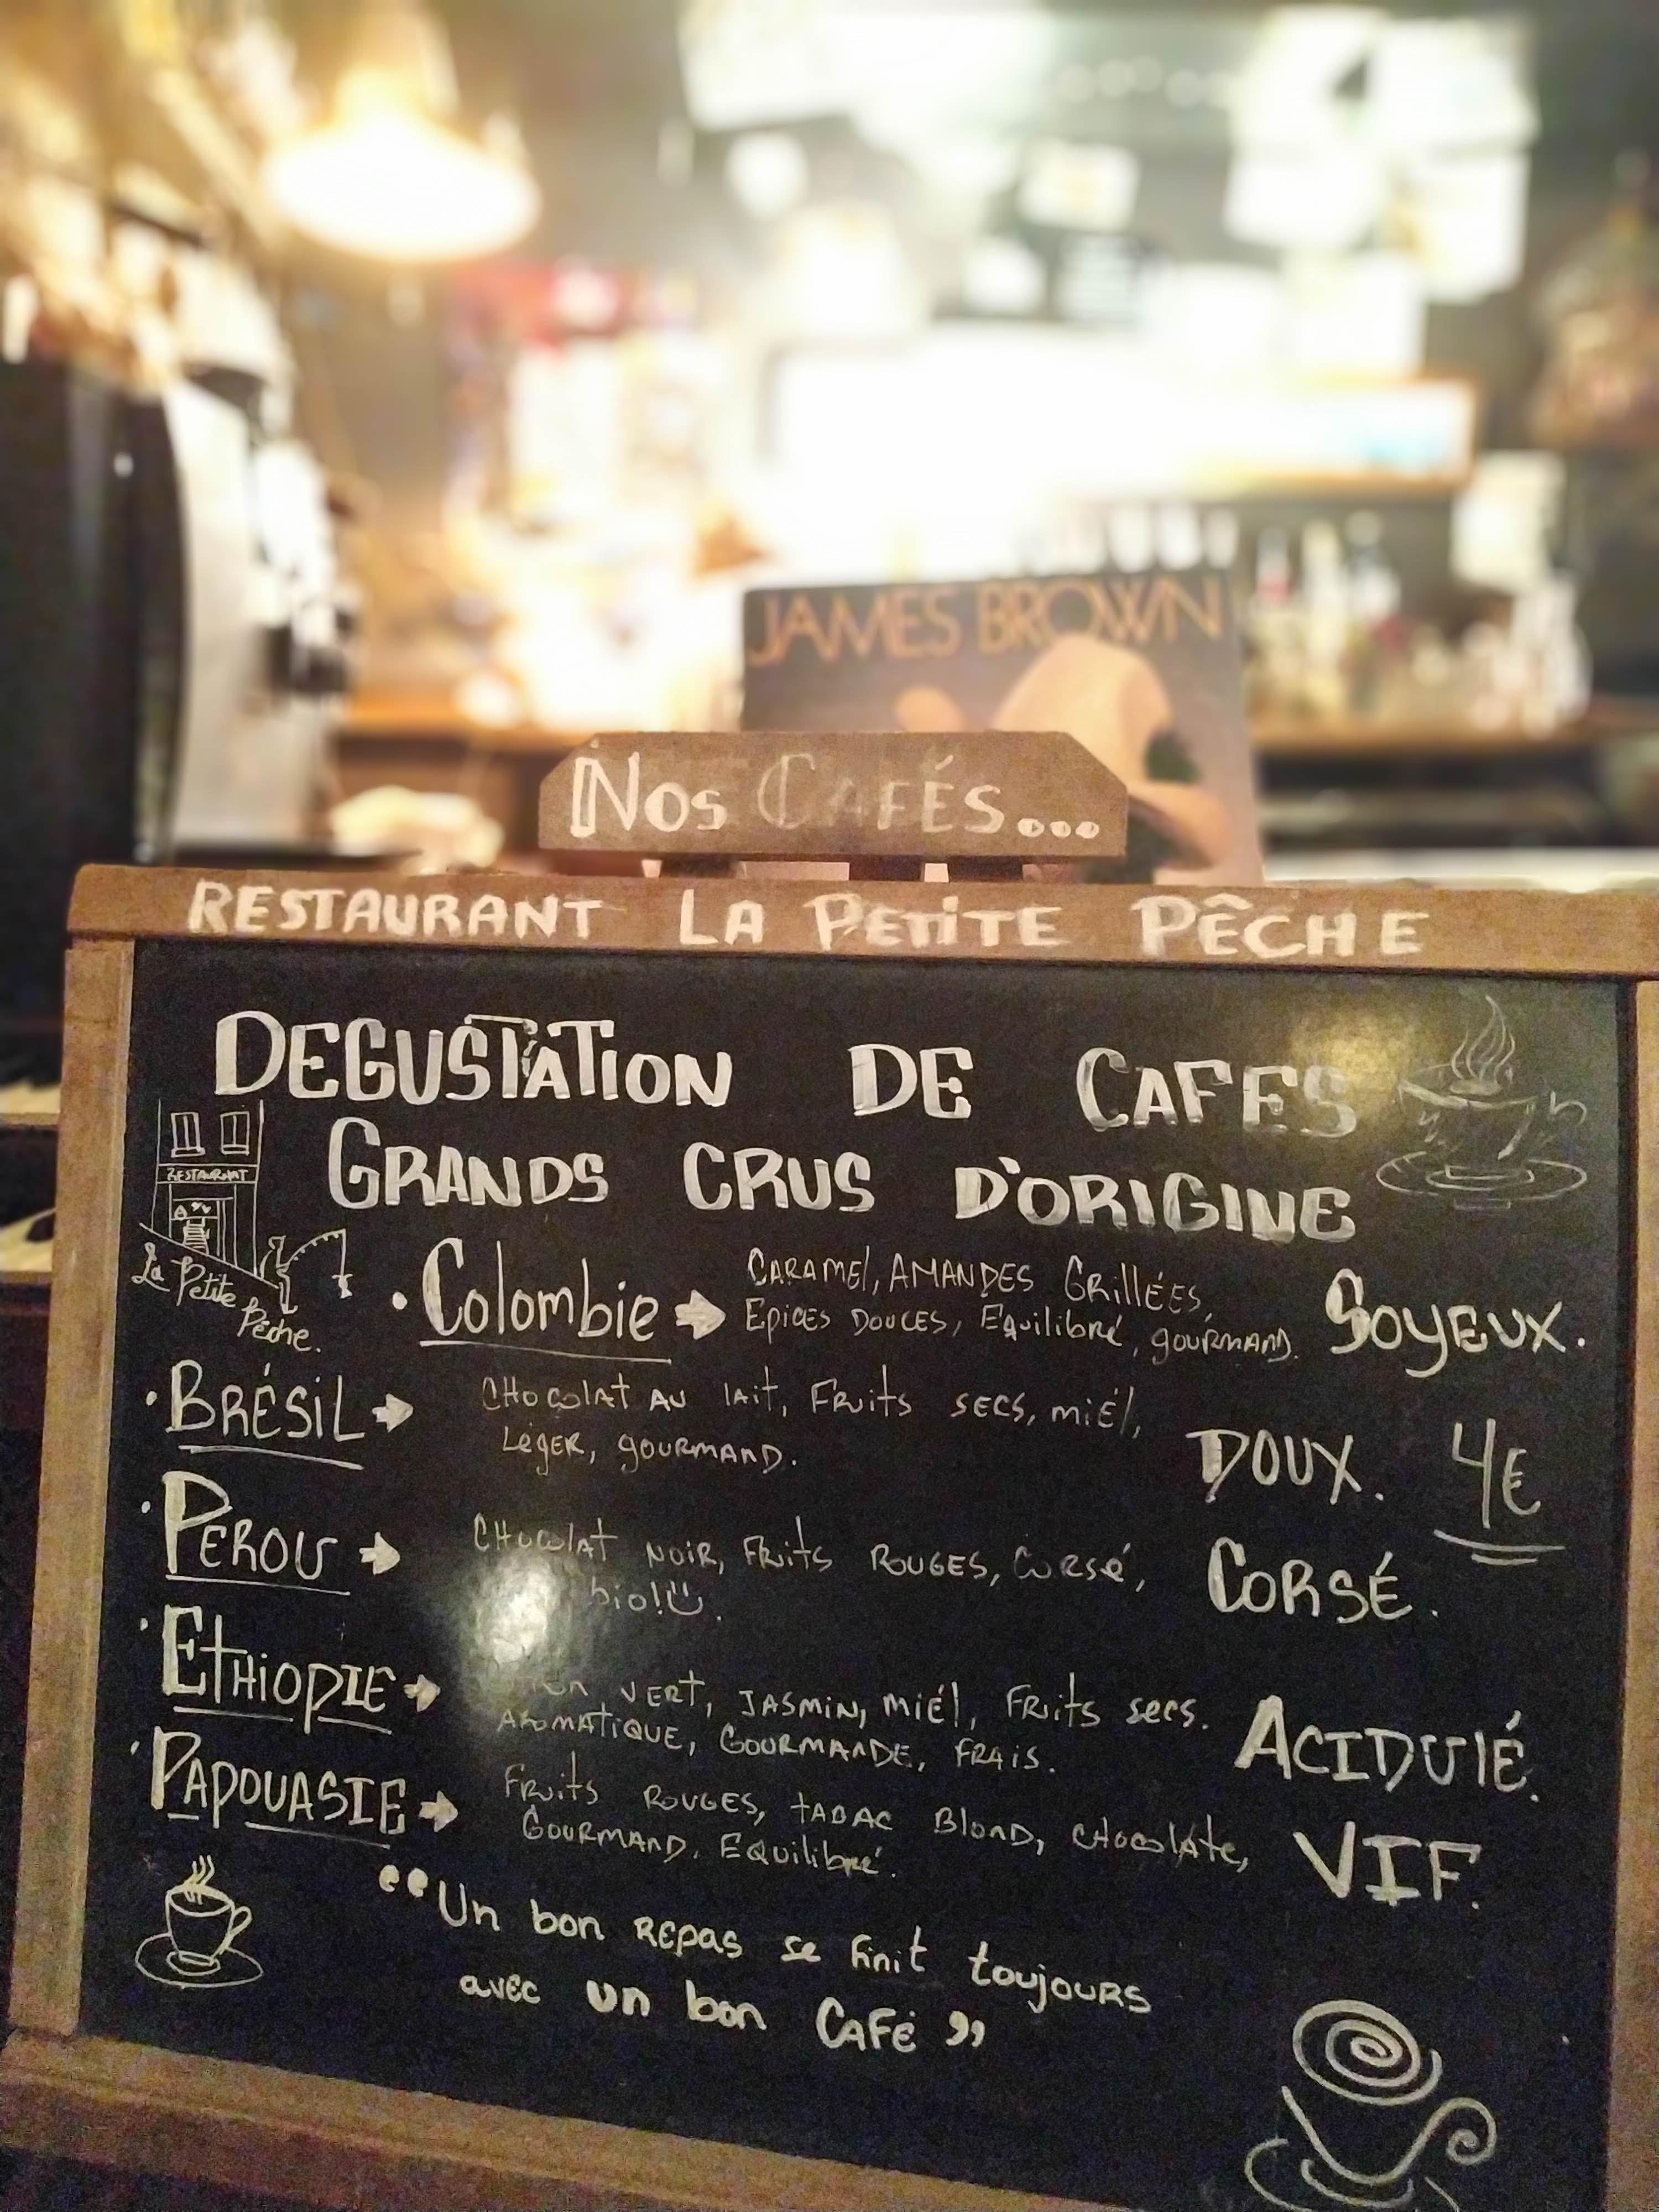 JAMES BROWN
Nos CAFÉS...
RESTAURANT LA PETITE PÊCHE
DEGUSTATION DE CAFES
GRANDS CRUS D'ORIGINE
RESTAURNAT
La Petite
Pêche.
• Colombie → CARAMEL, AMANDES GRILLÉES,
EPICES DOUCES, EQUILIBRÉ, GOURMAND. SOYEUX.
• BRÉSIL → CHOCOLAT AU LAIT, FRUITS SECS, MIÉL,
LÉGER, GOURMAND. DOUX. 4€
• PEROU → CHOCOLAT NOIR, FRUITS ROUGES, CORSÉ,
bio! CORSÉ.
• ETHIOPIE → VERT, JASMIN, MIÉL, FRUITS SECS.
AROMATIQUE, GOURMANDE, FRAIS. ACIDULÉ.
• PAPOUASIE → FRUITS ROUGES, TABAC BLOND, CHOCOLATE,
GOURMAND, EQUILIBRÉ. VIF.
“Un bon REPAS se finit toujours
avec un bon CAFÉ”